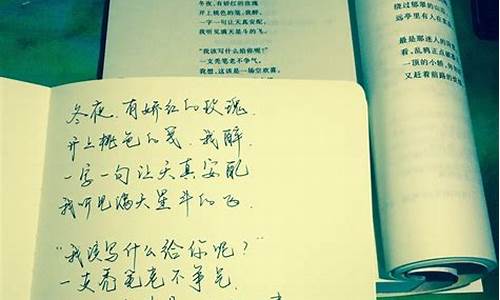 冬夜，有娇红的玫瑰
开上桃色的笺，我醉，
一字一句让天真安配
我听见满天星斗的飞。
“我该写什么给你呢？”
一支秃笔老不争气，
我想，这该是一场空欢喜。
绕过郁翠的山
远亭里有人在
最是那迷人的
看，乱鸦正点
一顶的小轿，
又赶着前路的
冬夜.有娇红的玫瑰.
开上桃色的笺.我醉.
一字一句让天真安配
我听见满天星斗的飞.
“我该写什么给你呢？”
一支秃笔老不争气.